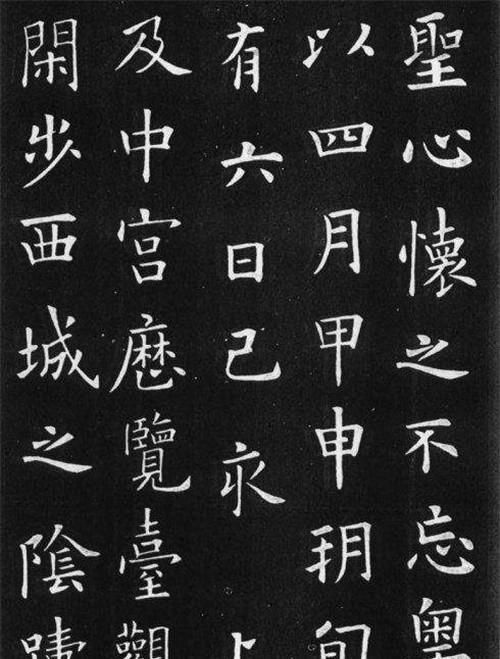 聖心懷之不忘粵
以四月甲申朔旬
有六日己亥上
及中宮歷覽臺觀
閑步西城之陰躊